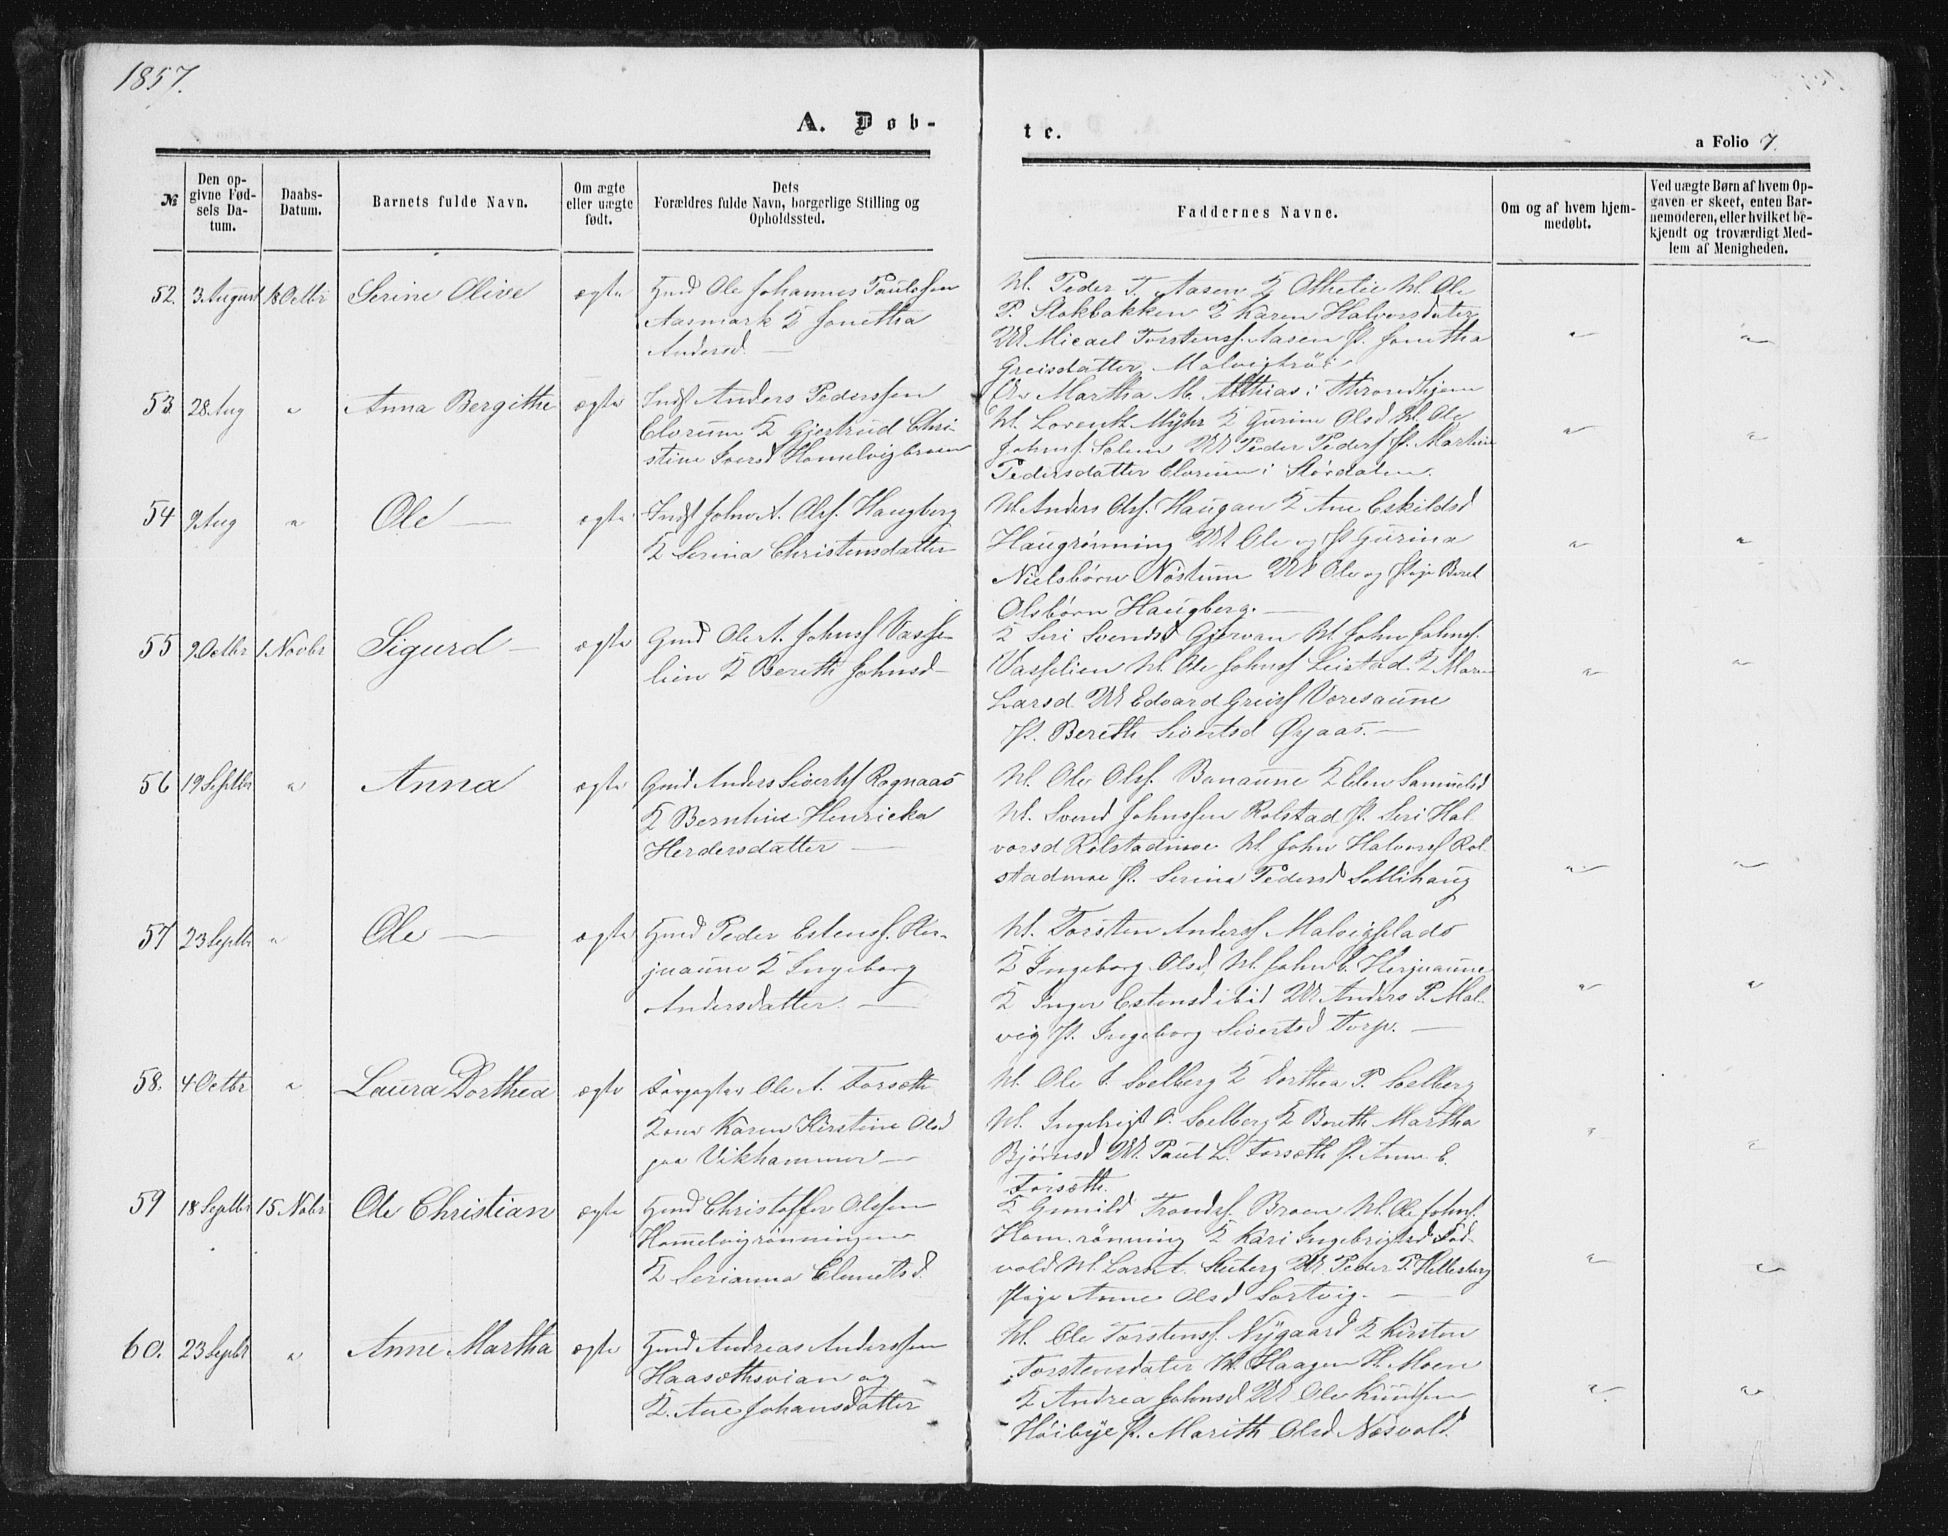 1857.
A. Døb-
te.
a Folio 7.
№
Den op-
givne Fød-
sels Da-
tum.
Daabs-
Datum.
Barnets fulde Navn.
Om ægte
eller uægte
født.
Dets
Forældres fulde Navn, borgerlige Stilling og
Opholdssted.
Faddernes Navne.
Om og af hvem hjem-
medøbt.
Ved uægte Børn af hvem Op-
gaven er skeet, enten Bar-
nemoderen, eller hvilket be-
kjendt og troværdigt Med-
lem af Menigheden.
52. 3 August 18 Octbr Serine Olive ægte
Gmd Ole Johannes Paulssen
Aasmark K Jonetha
Andersd
M. Peder T. Aasen K Othelie M. Ole
P. Stokbakken K Karen Halvorsdatter
UM. Micael Torstens. Aasen P. Jonetha
Greisdatter Malvig
53 28 Aug " Anna Bergithe ægte
Inds Anders Pederssen
K Gjertrud Chri-
stine Homelvigbroen
Martha M. i Throndhjem
M. Lorentz Myhr K Gurine Olsd M. Ole
Johns. Solem UM Peder Peders P. Martine
Pedersdatter i Størdalen.
54 9 Aug " Ole — ægte
Inds John A. Ols. Haugberg
K Serina Christensdatter
M. Anders Ols. Haugan K Ane Eskildsd
Haugrønning UM Ole og P Gurina
Nielsbørn Nøstum UM Ole og Pige Beret
Olsbørn Haugberg. —
55 9 Octbr 1 Novbr Sigurd — ægte
Gmd Ole A. Johns Vasse-
lien K Bereth Johnsd
K Seri Svendsd Gjervan M. John Johns.
Vasselien M. Ole Johns Leistad K Maren
Larsd UM Edvard Greis Voresaune
P. Bereth Sivertsd Øyaas. —
56 19 Septbr " Anna ægte
Gmd Anders Siverts Rognaas
K Berntine Henricka
Herdersdatter —
M. Ole Ols. Bonaune K Elen Samuelsd
M. Svend Johnssen Rolstad P. Seri Hal
vorsd Rolstadmoe M. John Halvors Rol
stadmoe P. Serina Pedersd Sollihaug
57 23 Septbr " Ole — ægte
Gmd Peder Estens. Her-
juaune K Ingeborg
Andersdatter. —
M. Torsten Anders Malvigplads
K Ingeborg Olsd M. John E. Herjuaune
K Inger Estensd ibid UM Anders P. Mal-
vig P. Ingeborg Sivertsd Torp. —
58. 4 Octbr " Laura Dorthea ægte
Ole A. Forseth
Kone Karen Kirstine Olsd
paa Vikhammer —
M. Ole I. Soelberg K Dorthea P. Soelberg
M. Ingebrigt O. Soelberg K Bereth Martha
Bjørnsd UM. Paul L. Forseth P. Anne E.
Forseth.
59 18 Septbr 15 Nobr Ole Christian ægte
Gmd Christoffer Olssen
Homelvigrønningen
K Serianna Clemetsd.
K Gunild Tronds. Broen M. Ole Johns.
Hom.rønning K Kari Ingebrigtsd
vold M. Lars A. Stuberg UM Peder P. Hellesberg
Pige Anne Olsd Sortvig. —
60. 23 Septbr " Anne Martha ægte
Gmd Andreas Anderssen
Haasethsvian og
K. Ane Johansdatter
M. Ole Torstens. Nÿgaard K Kirsten
Torstensdater M. Haagen H. Moen
K Andrea Johnsd UM Ole Knudsen
Høibye P. Marith Olsd Næsvold.